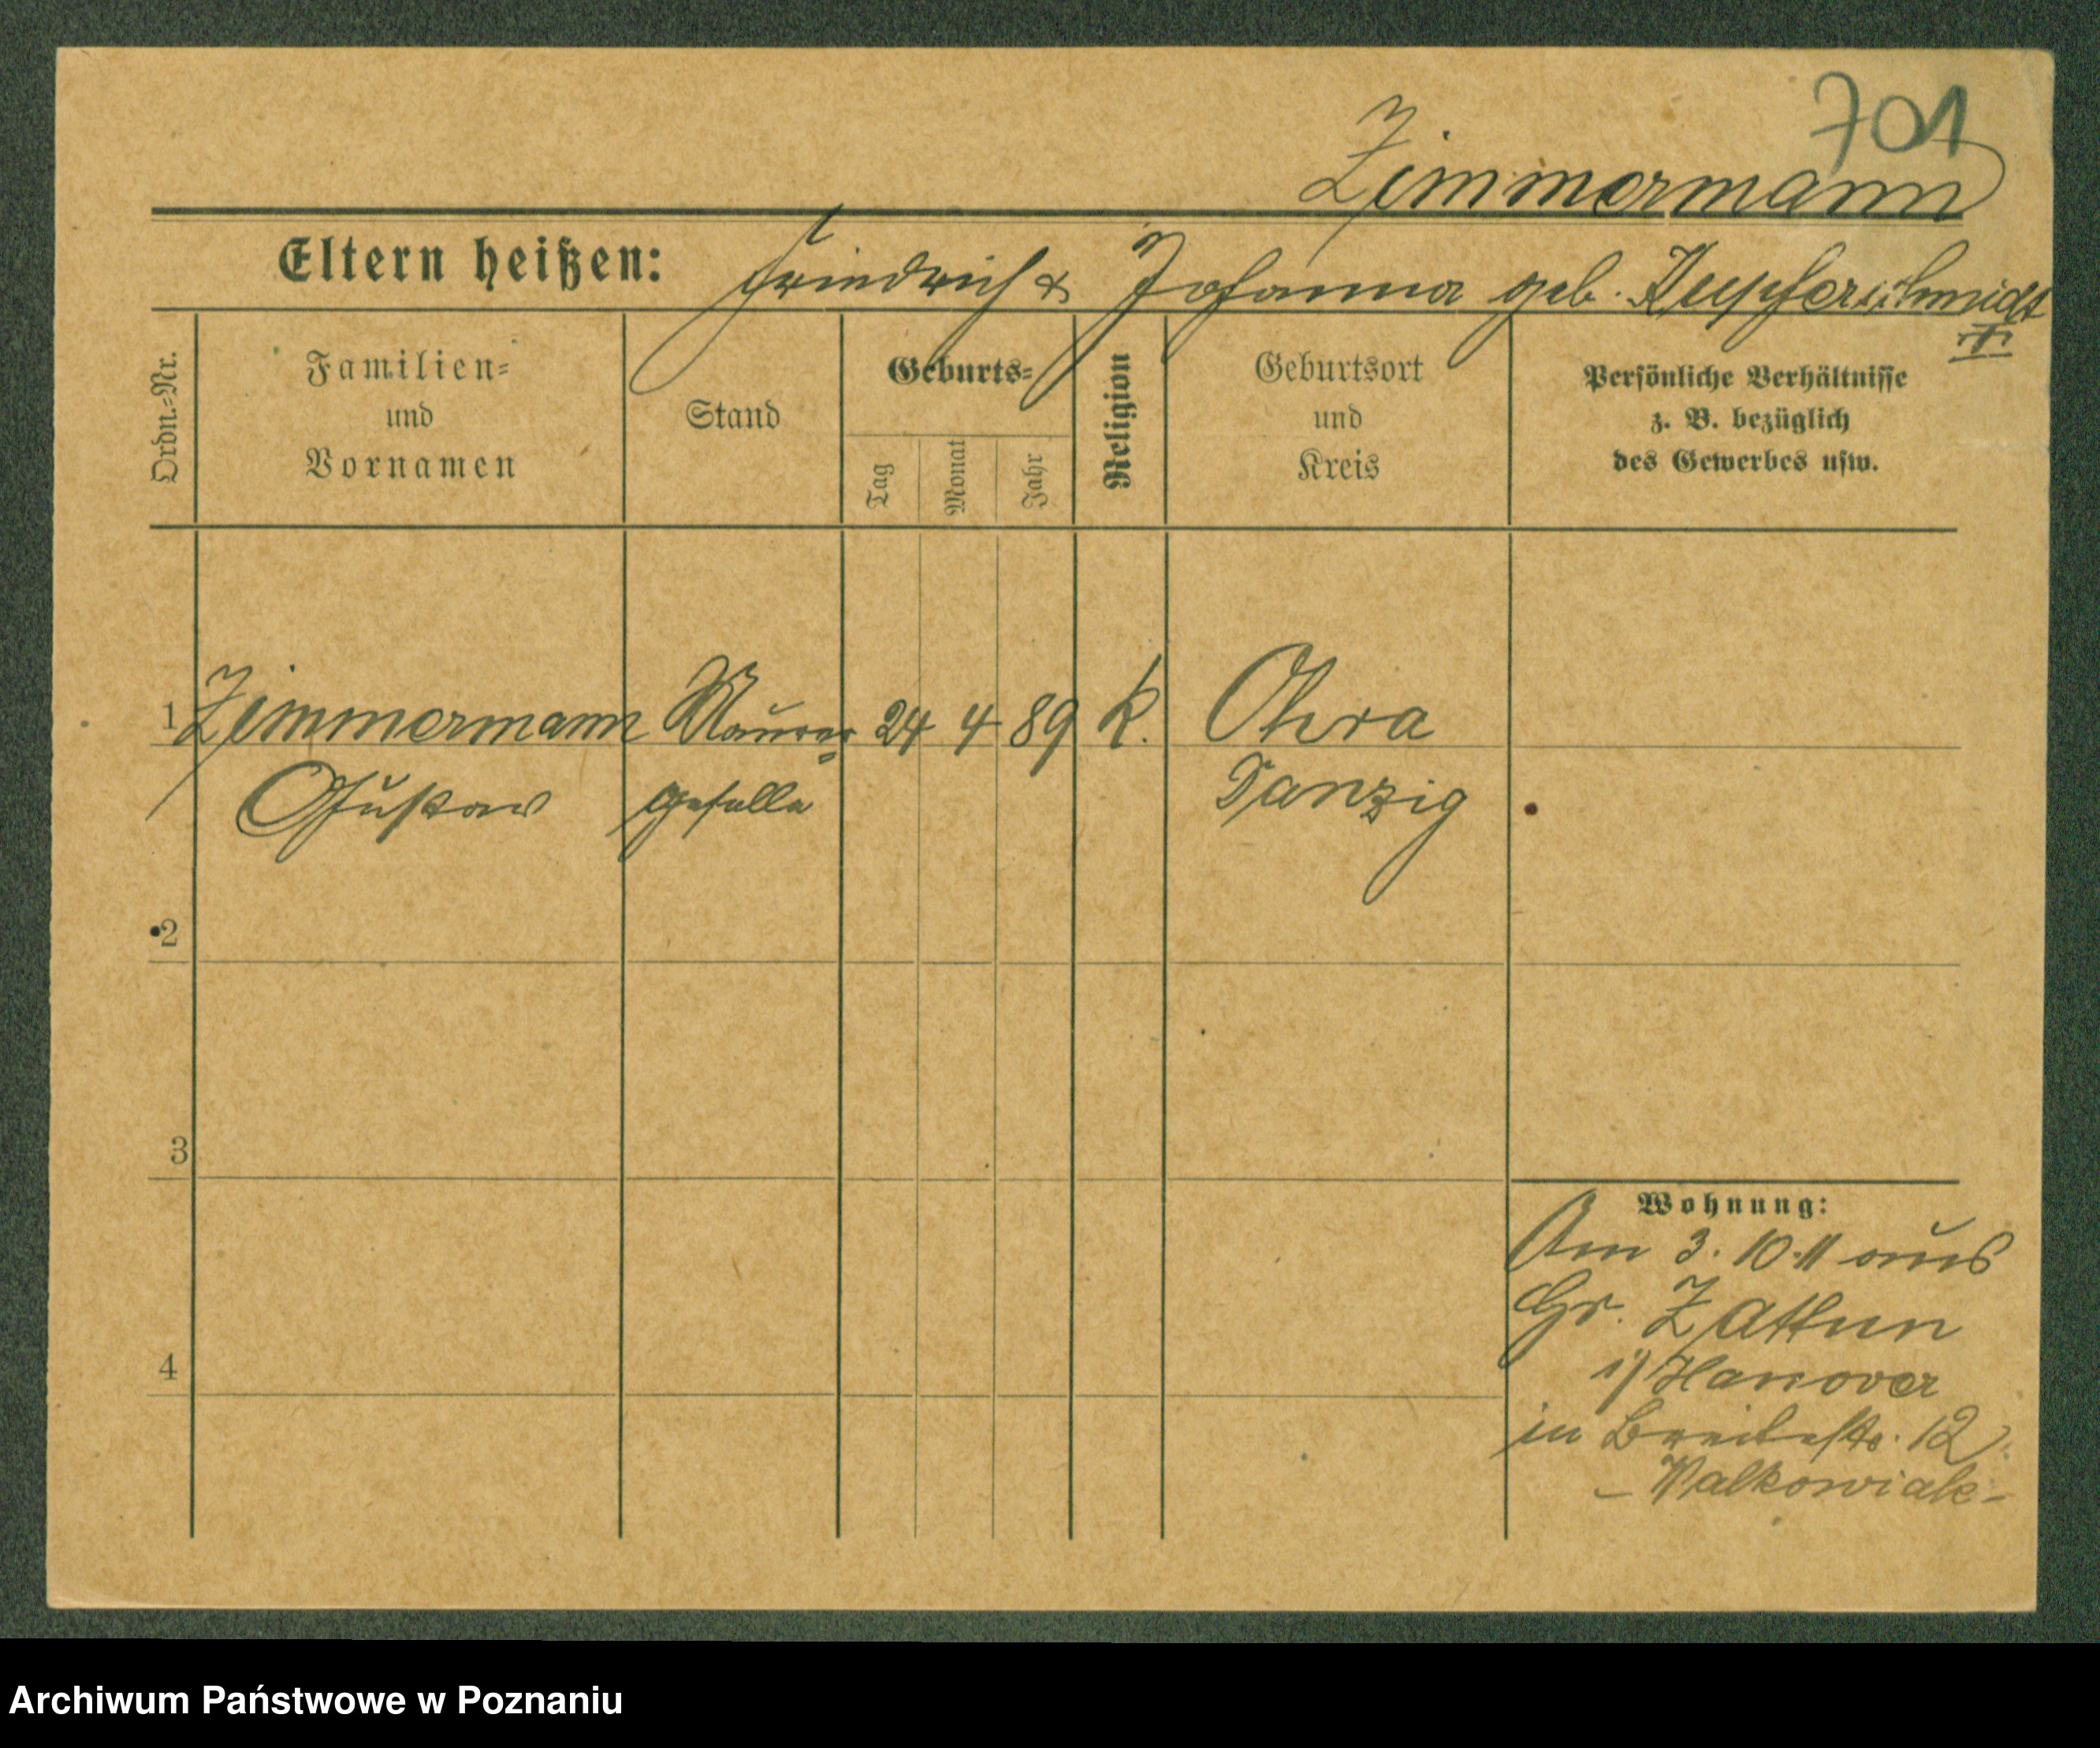 701
Zimmermann
Eltern heißen: Friedrich & Johanna geb. Kupferschmidt
Ordn.-Nr.
Familien-
und
Vornamen
Stand
Geburts-
Tag
Monat
Jahr
Religion
Geburtsort
und
Kreis
Persönliche Verhältnisse
z. B. bezüglich
des Gewerbes usw.
1 Zimmermann Maurer 24 4 89 k. Ohra
Gustav geselle Danzig
2
3
4
Wohnung:
Am 3. 10. 11 aus
Gr.
i/ Hanover
in Breitestr. 12
- Walkowiak -
Archiwum Państwowe w Poznaniu